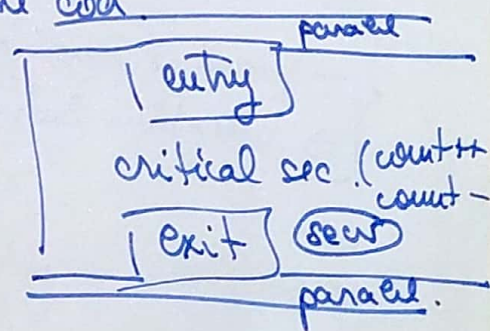 parallel
entry
critical sec. (count++
count -
exit secv
parallel.